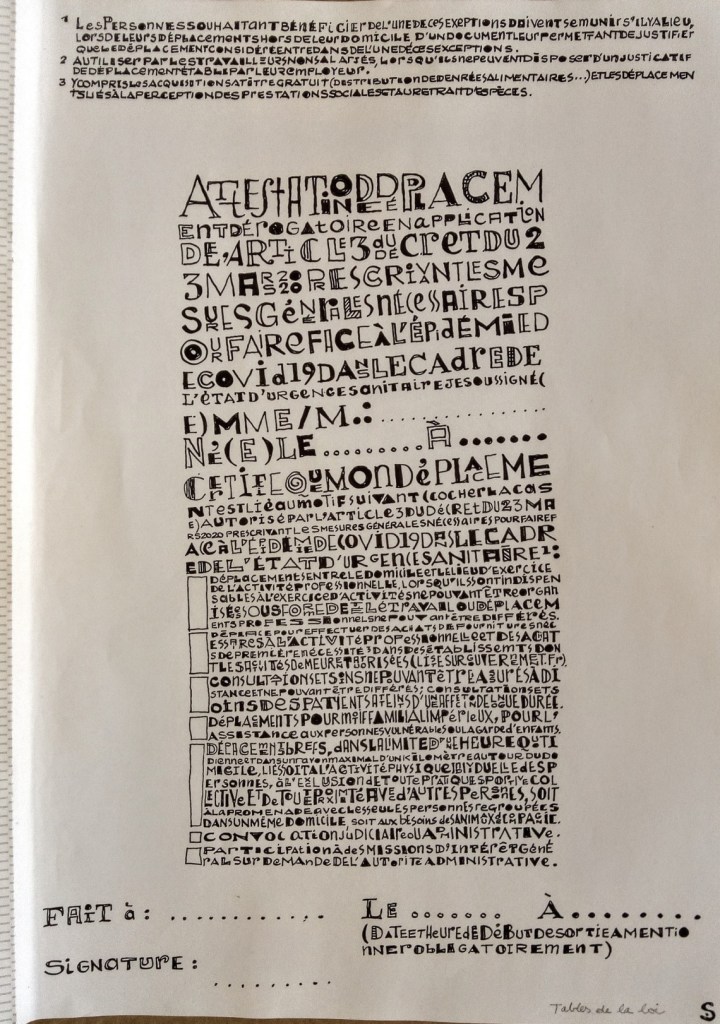 1 LES PERSONNES SOUHAITANT BÉNÉFICIER DE L'UNE DE CES EXEPTIONS DOIVENT SE MUNIR S'IL Y A LIEU,
LORS DE LEURS DÉPLACEMENTS HORS DE LEUR DOMICILE, D'UN DOCUMENT LEUR PERMETTANT DE JUSTIFIER
QUE LE DÉPLACEMENT CONSIDÉRÉ ENTRE DANS DE L'UNE DE CES EXCEPTIONS.
2 A UTILISER PAR LES TRAVAILLEURS NON SALARIÉS, LORSQU'ILS NE PEUVENT DISPOSER D'UN JUSTICATIF
DE DÉPLACEMENT ÉTABLI PAR LEUR EMPLOYEUR.
3 Y COMPRIS LES ACQUISITIONS À TITRE GRATUIT (DISTRIBUTION DE DENRÉES ALIMENTAIRES...) ET LES DÉPLACEMEN
TS LIÉS À LA PERCEPTION DES PRESTATIONS SOCIALES ET AU RETRAIT D'ESPÈCES.
ATTESTATION DE DÉPLACEM
ENT DÉROGATOIRE EN APPLICATION
DE L'ARTICLE 3 DU DÉCRET DU 2
3 MARS 2020 PRESCRIVANT LES ME
SURES GÉNÉRALES NÉCESSAIRES P
OUR FAIRE FACE À L'ÉPIDÉMIE D
E COVID 19 DANS LE CADRE DE
L'ÉTAT D'URGENCE SANITAIRE JE SOUSSIGNÉ(
E) MME/M.: ..............
NÉ(E) LE .......... À .......
CERTIFIE QUE MON DÉPLACEME
NT EST LIÉ AU MOTIF SUIVANT (COCHER LA CAS
E) AUTORISÉ PAR L'ARTICLE 3 DU DÉCRET DU 23 MA
RS 2020 PRESCRIVANT LES MESURES GÉNÉRALES NÉCESSAIRES POUR FAIRE F
ACE À L'ÉPIDÉMIE DE COVID 19 DANS LE CADR
E DE L'ÉTAT D'URGENCE SANITAIRE 1:
DÉPLACEMENTS ENTRE LE DOMICILE ET LE LIEU D'EXERCICE
DE L'ACTIVITÉ PROFESSIONNELLE, LORSQU'ILS SONT INDISPEN
SABLES À L'EXERCICE D'ACTIVITÉS NE POUVANT ÊTRE ORGAN
ISÉES SOUS FORME DE TÉLÉTRAVAIL OU DÉPLACEM
ENTS PROFESSIONNELS NE POUVANT ÊTRE DIFFÉRÉS.
DÉPLACEMENTS POUR EFFECTUER DES ACHATS DE FOURNITURES NÉC
ESSAIRES À L'ACTIVITÉ PROFESSIONNELLE ET DES ACHAT
S DE PREMIÈRE NÉCESSITÉ 3 DANS DES ÉTABLISSEMENTS DON
T LES ACTIVITÉS DEMEURENT AUTORISÉES (LISTE SUR GOUVERNEMENT.FR)
CONSULTATIONS ET SOINS NE POUVANT ÊTRE ASSURÉS À DI
STANCE ET NE POUVANT ÊTRE DIFFÉRÉS; CONSULTATIONS ET S
OINS DES PATIENTS ATTEINTS D'UNE AFFECTION DE LONGUE DURÉE.
DÉPLACEMENTS POUR MOTIF FAMILIAL IMPÉRIEUX, POUR L'
ASSISTANCE AUX PERSONNES VULNÉRABLES OU LA GARDE D'ENFANTS.
DÉPLACEMENTS BREFS, DANS LA LIMITE D'UNE HEURE QUOTI
DIENNE ET DANS UN RAYON MAXIMAL D'UN KILOMÈTRE AUTOUR DU DO
MICILE, LIÉS SOIT À L'ACTIVITÉ PHYSIQUE INDIVIDUELLE DES P
ERSONNES, À L'EXCLUSION DE TOUTE PRATIQUE SPORTIVE COL
LECTIVE ET DE TOUTE PROXIMITÉ AVEC D'AUTRES PERSONNES, SOIT
À LA PROMENADE AVEC LES SEULES PERSONNES REGROUPÉES
DANS UN MÊME DOMICILE, SOIT AUX BESOINS DES ANIMAUX DE COMPAGNIE.
CONVOCATION JUDICIAIRE OU ADMINISTRATIVE.
PARTICIPATION À DES MISSIONS D'INTÉRÊT GÉNÉ
RAL SUR DEMANDE DE L'AUTORITÉ ADMINISTRATIVE.
FAIT À: ............
LE ....... À ........
(DATE ET HEURE DE DÉBUT DE SORTIE À MENTIO
NNER OBLIGATOIREMENT)
SIGNATURE:
..........
Tables de la loi
S